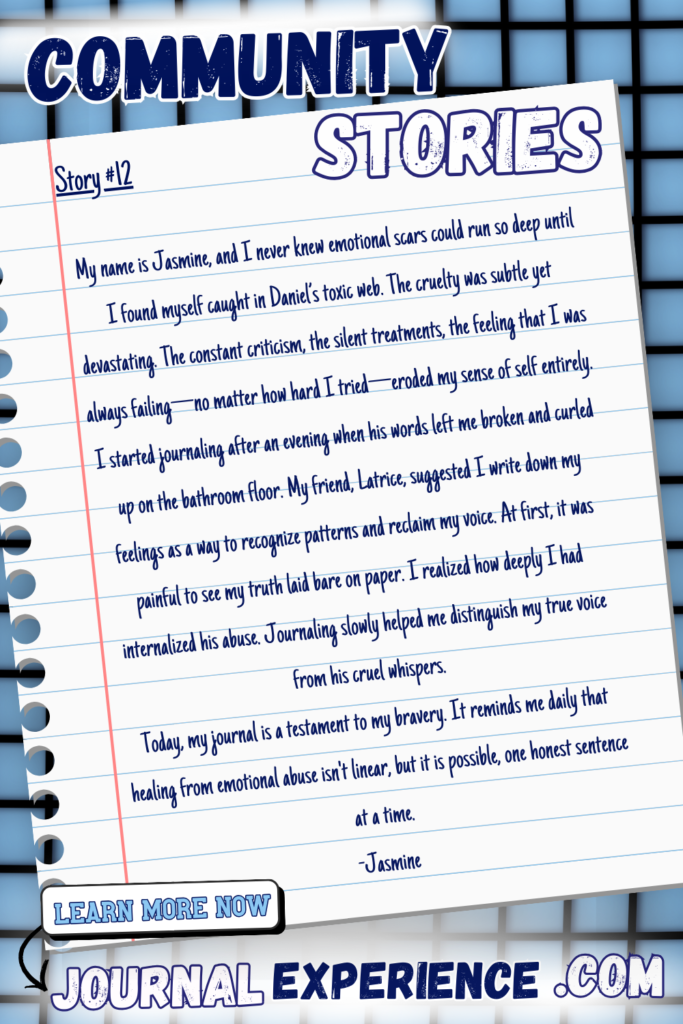 COMMUNITY
STORIES
Story #12
My name is Jasmine, and I never knew emotional scars could run so deep until
I found myself caught in Daniel's toxic web. The cruelty was subtle yet
devastating. The constant criticism, the silent treatments, the feeling that I was
always failing—no matter how hard I tried—eroded my sense of self entirely.
I started journaling after an evening when his words left me broken and curled
up on the bathroom floor. My friend, Latrice, suggested I write down my
feelings as a way to recognize patterns and reclaim my voice. At first, it was
painful to see my truth laid bare on paper. I realized how deeply I had
internalized his abuse. Journaling slowly helped me distinguish my true voice
from his cruel whispers.
Today, my journal is a testament to my bravery. It reminds me daily that
healing from emotional abuse isn't linear, but it is possible, one honest sentence
at a time.
-Jasmine
LEARN MORE NOW
JOURNAL EXPERIENCE .COM